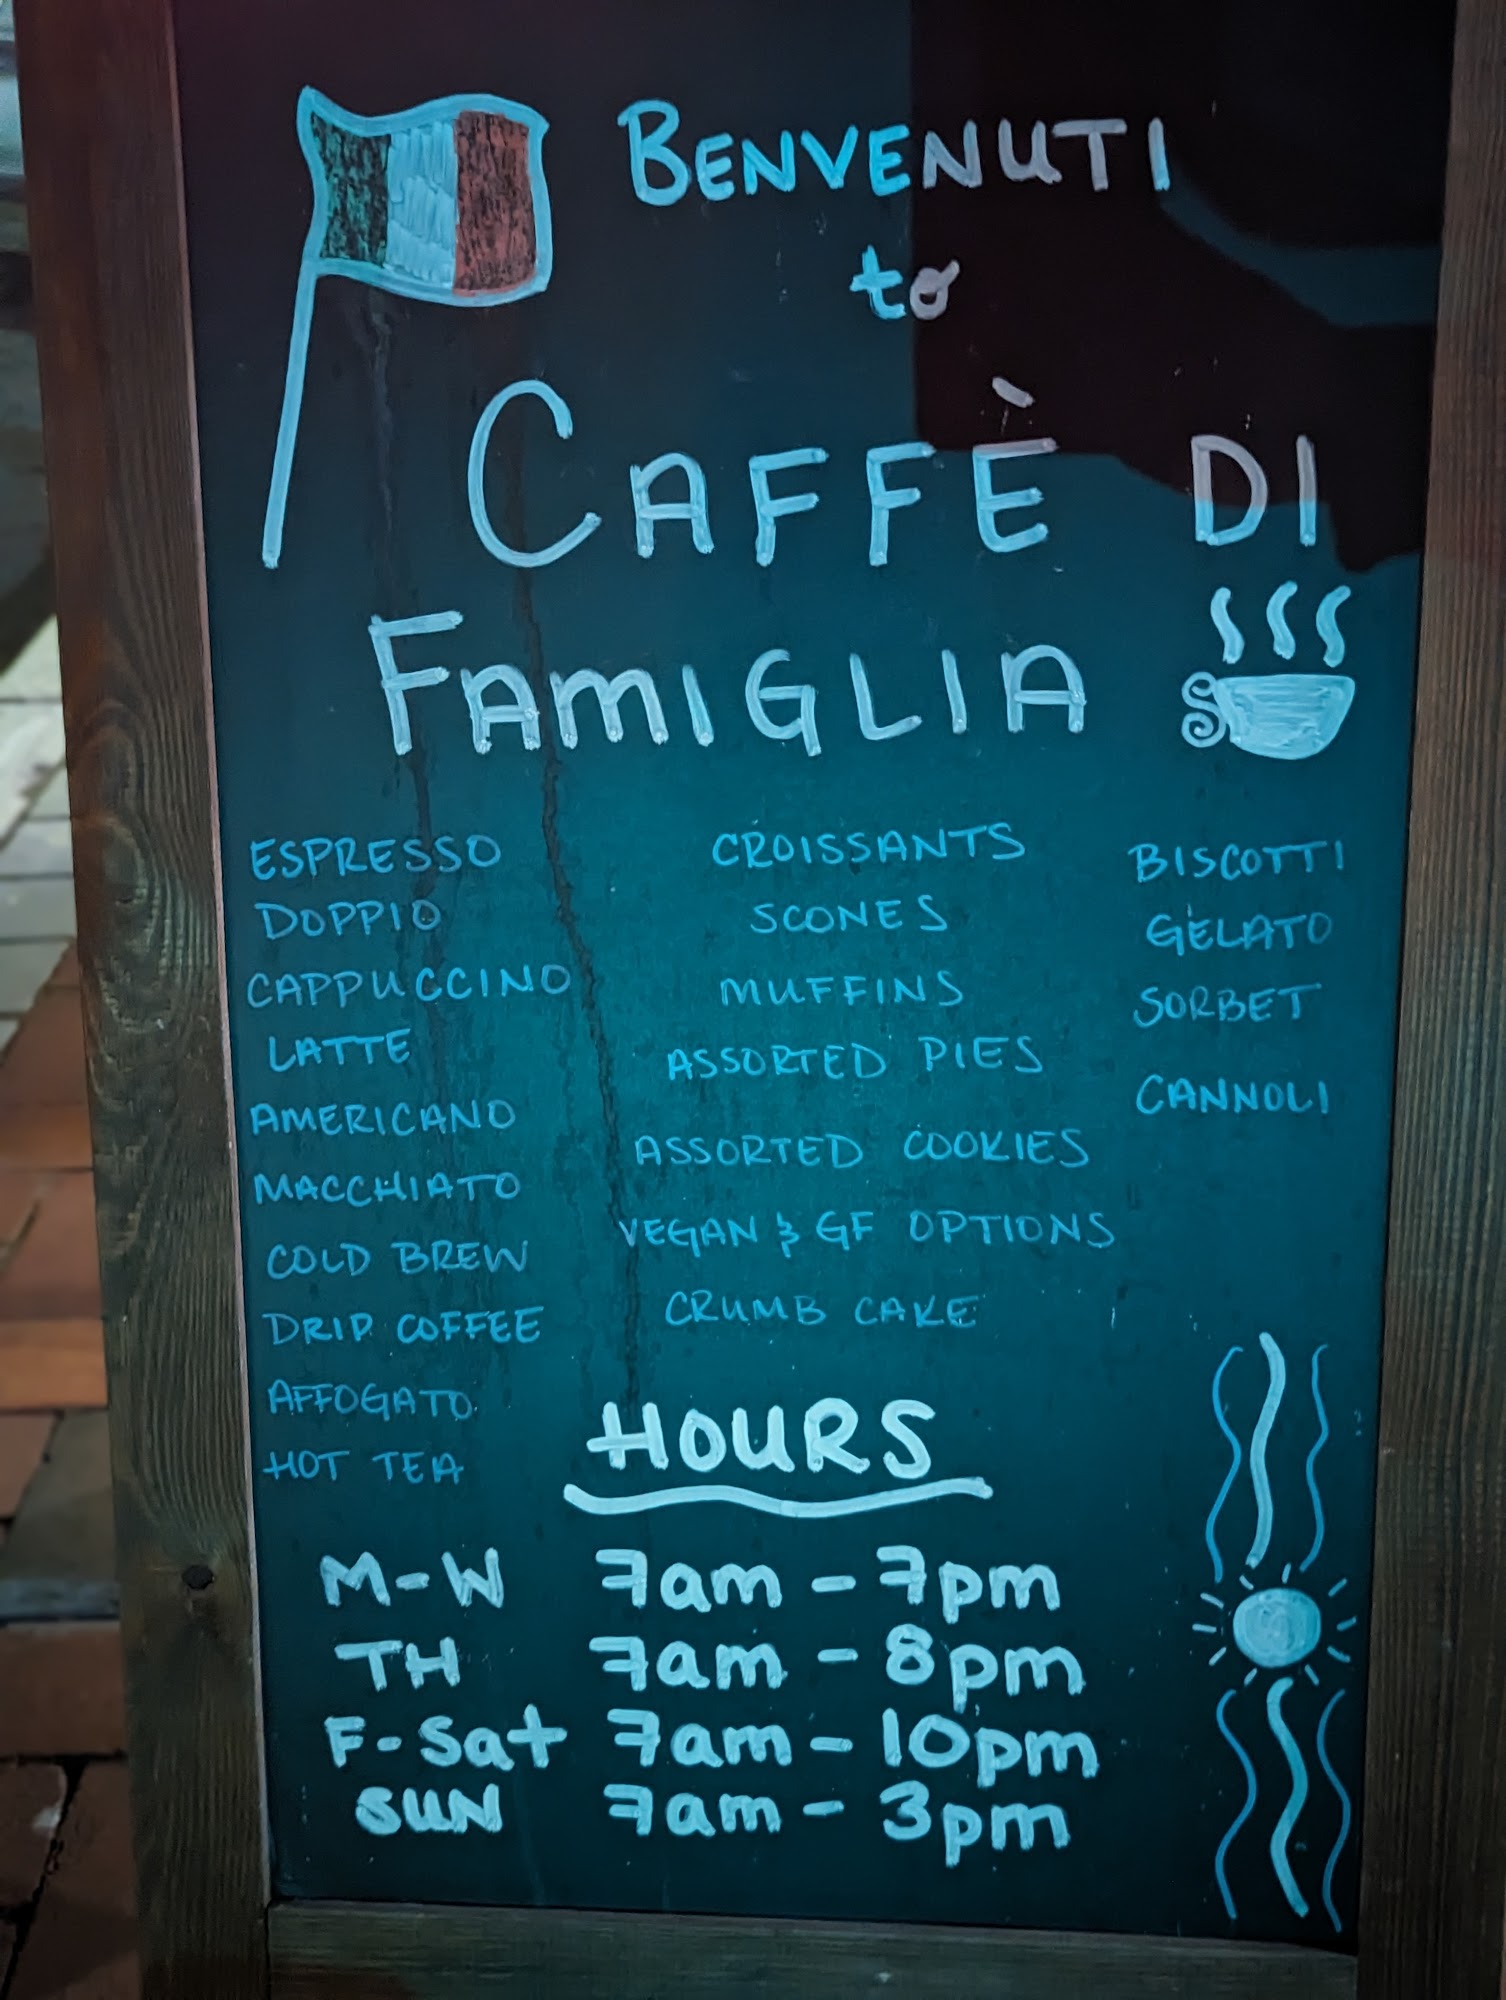 BENVENUTI
to
CAFFÈ DI
FAMIGLIA
ESPRESSO
DOPPIO
CAPPUCCINO
LATTE
AMERICANO
MACCHIATO
COLD BREW
DRIP COFFEE
AFFOGATO
HOT TEA
CROISSANTS
SCONES
MUFFINS
ASSORTED PIES
ASSORTED COOKIES
VEGAN & GF OPTIONS
CRUMB CAKE
BISCOTTI
GELATO
SORBET
CANNOLI
HOURS
M-W 7am - 7pm
TH 7am - 8pm
F-Sat 7am - 10pm
SUN 7am - 3pm